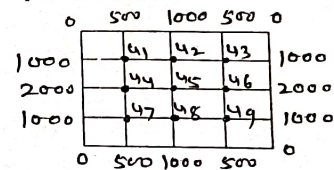 0 500 1000 500 0
1000 u1 u2 u3 1000
2000 u4 u5 u6 2000
1000 u7 u8 u9 1000
0
0 500 1000 500